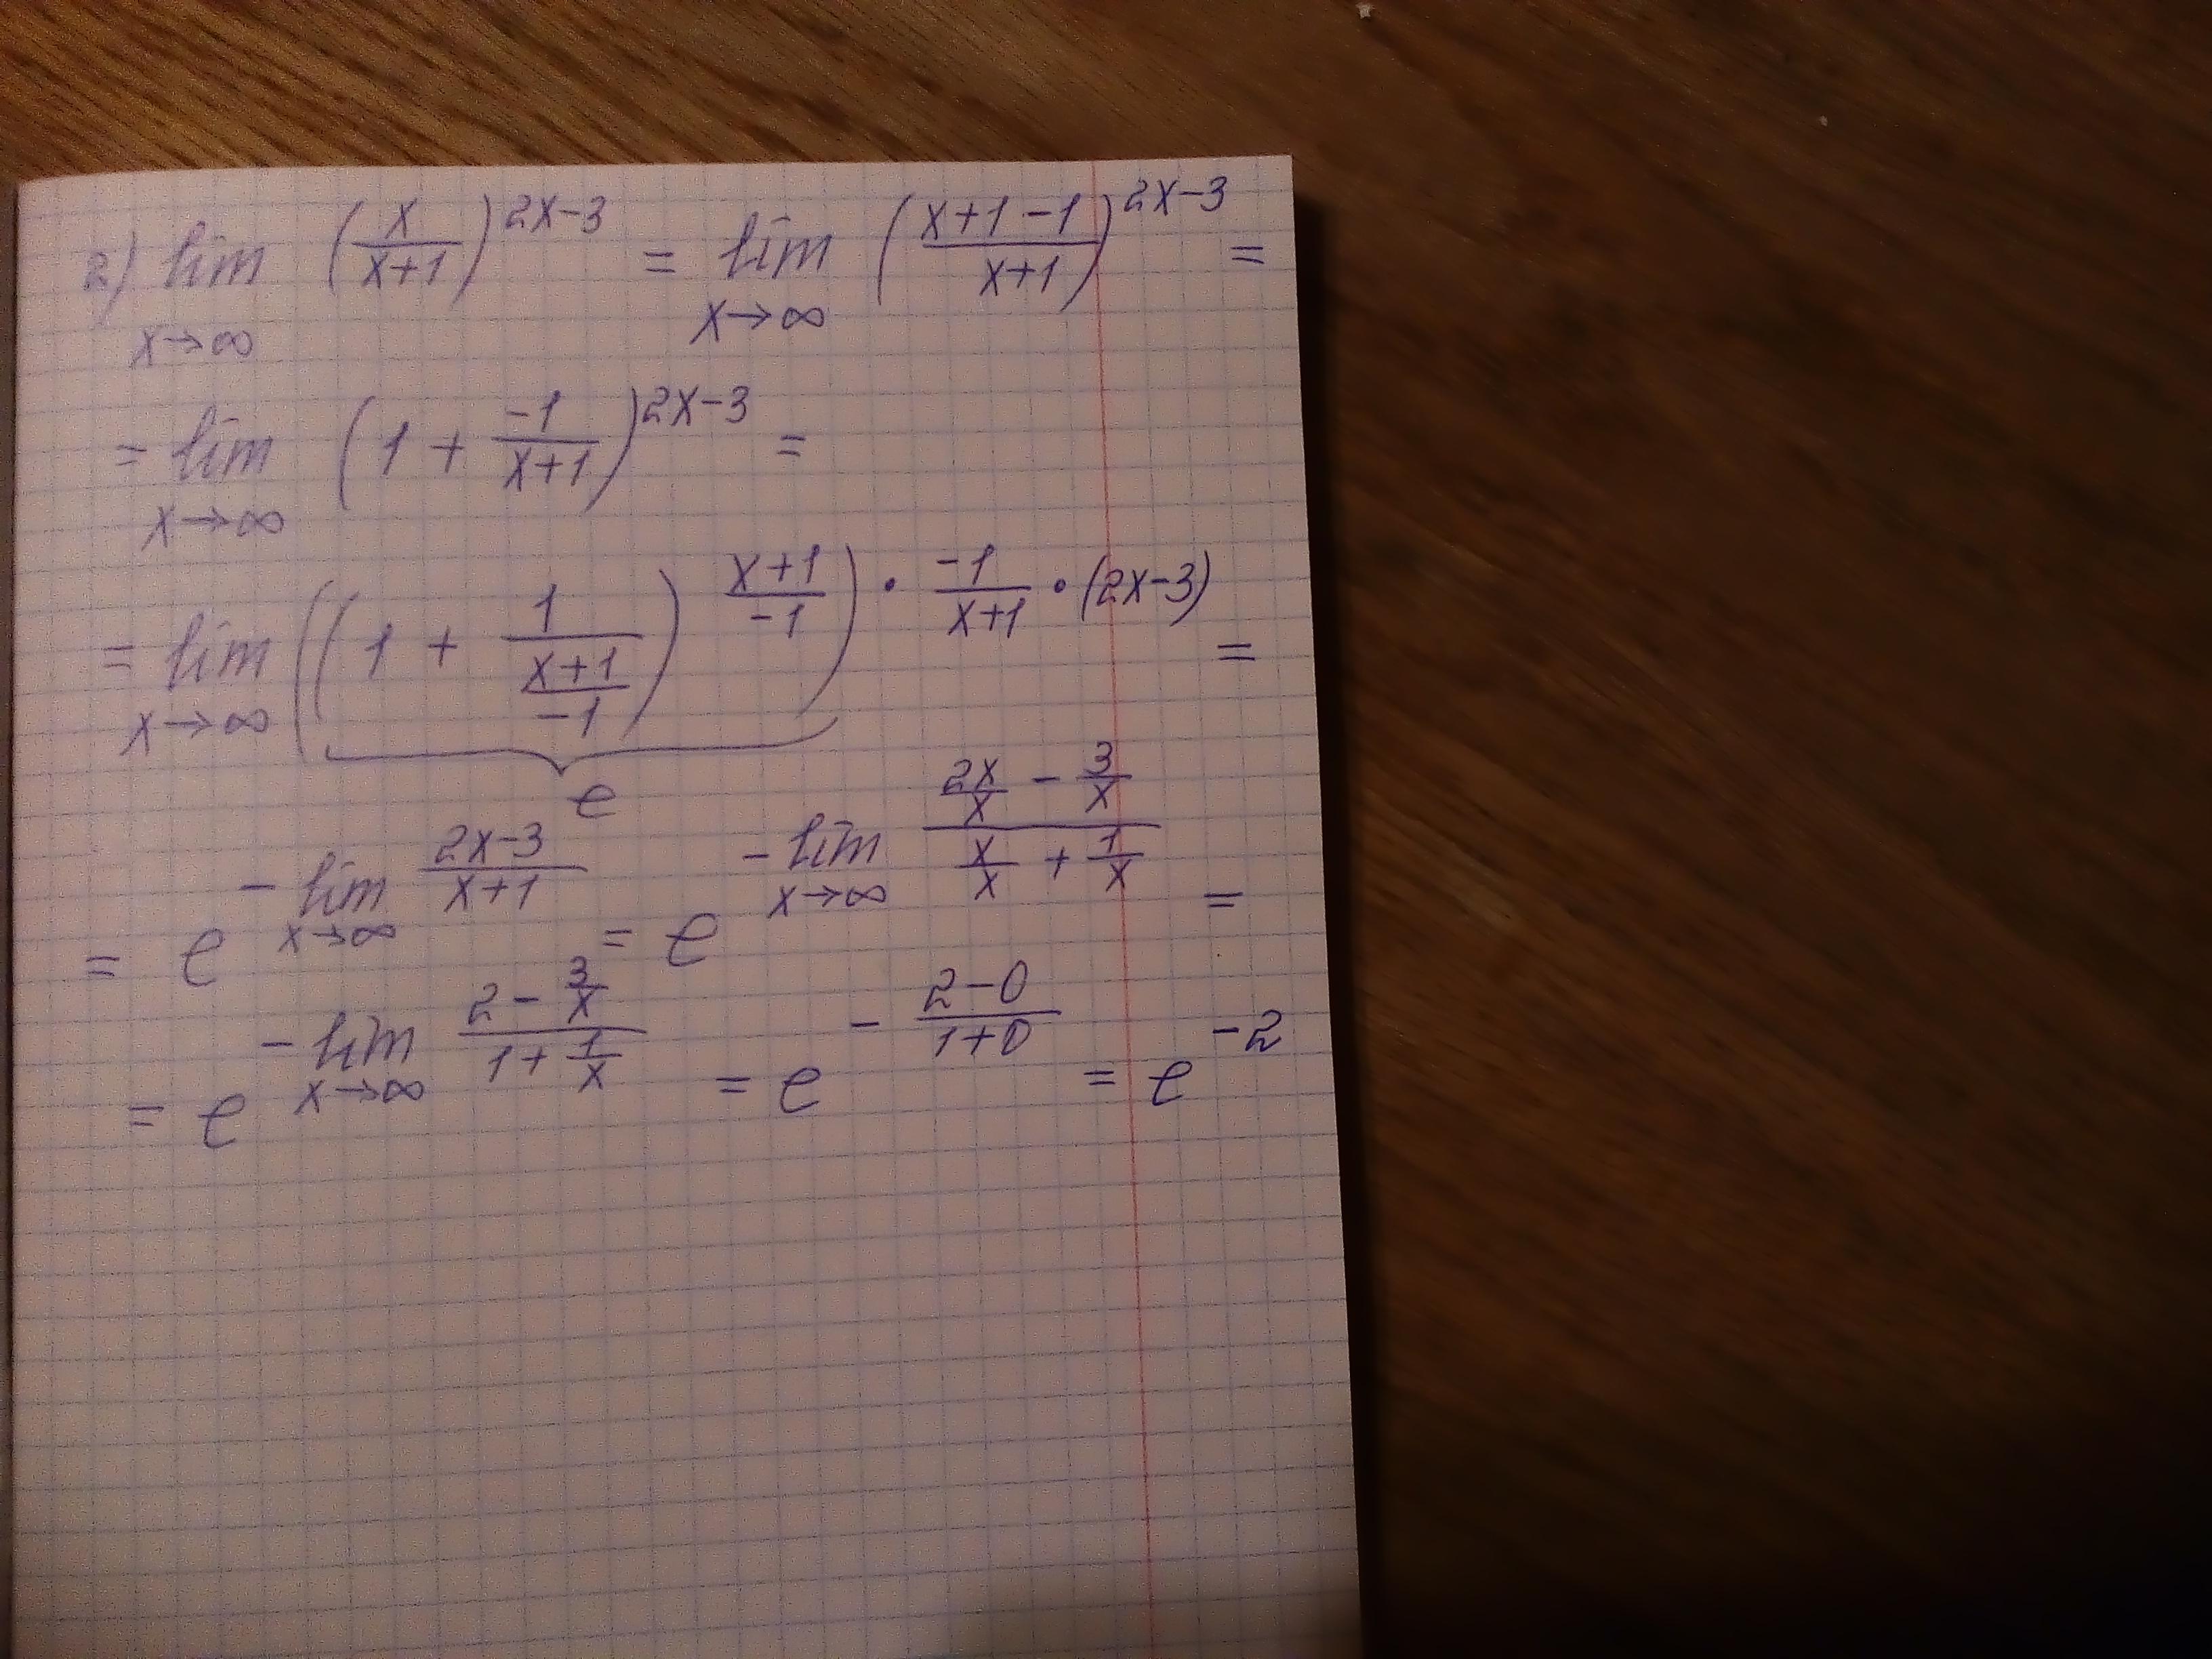 2) lim x→∞ (x/(x+1))^(2x-3) = lim x→∞ ((x+1-1)/(x+1))^(2x-3) =
= lim x→∞ (1 + (-1)/(x+1))^(2x-3) =
= lim x→∞ ((1 + 1/((x+1)/(-1)))^((x+1)/(-1)))^(· (-1)/(x+1) · (2x-3)) =
e
= e^(- lim x→∞ (2x-3)/(x+1)) = e^(- lim x→∞ (2x/x - 3/x)/(x/x + 1/x)) =
= e^(- lim x→∞ (2 - 3/x)/(1 + 1/x)) = e^(- (2-0)/(1+0)) = e^(-2)